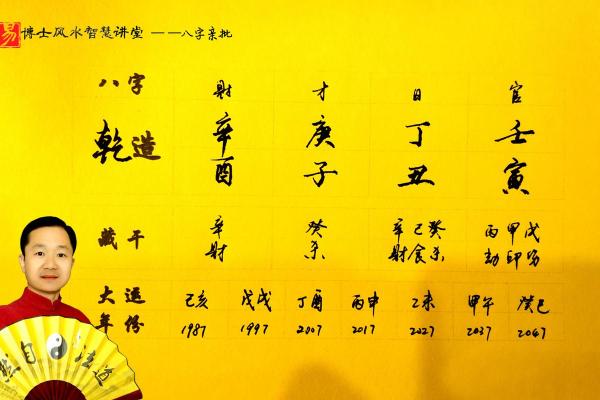 易 博士风水智慧讲堂 ——八字亲批
八字 財 才 日 官
乾造 辛 庚 丁 壬
酉 子 丑 寅
藏干 辛 癸 辛己癸 丙甲戊
財 杀 財食杀 劫印伤
大运 己亥 戊戌 丁酉 丙申 乙未 甲午 癸巳
年份 1987 1997 2007 2017 2027 2037 2047
然自法道